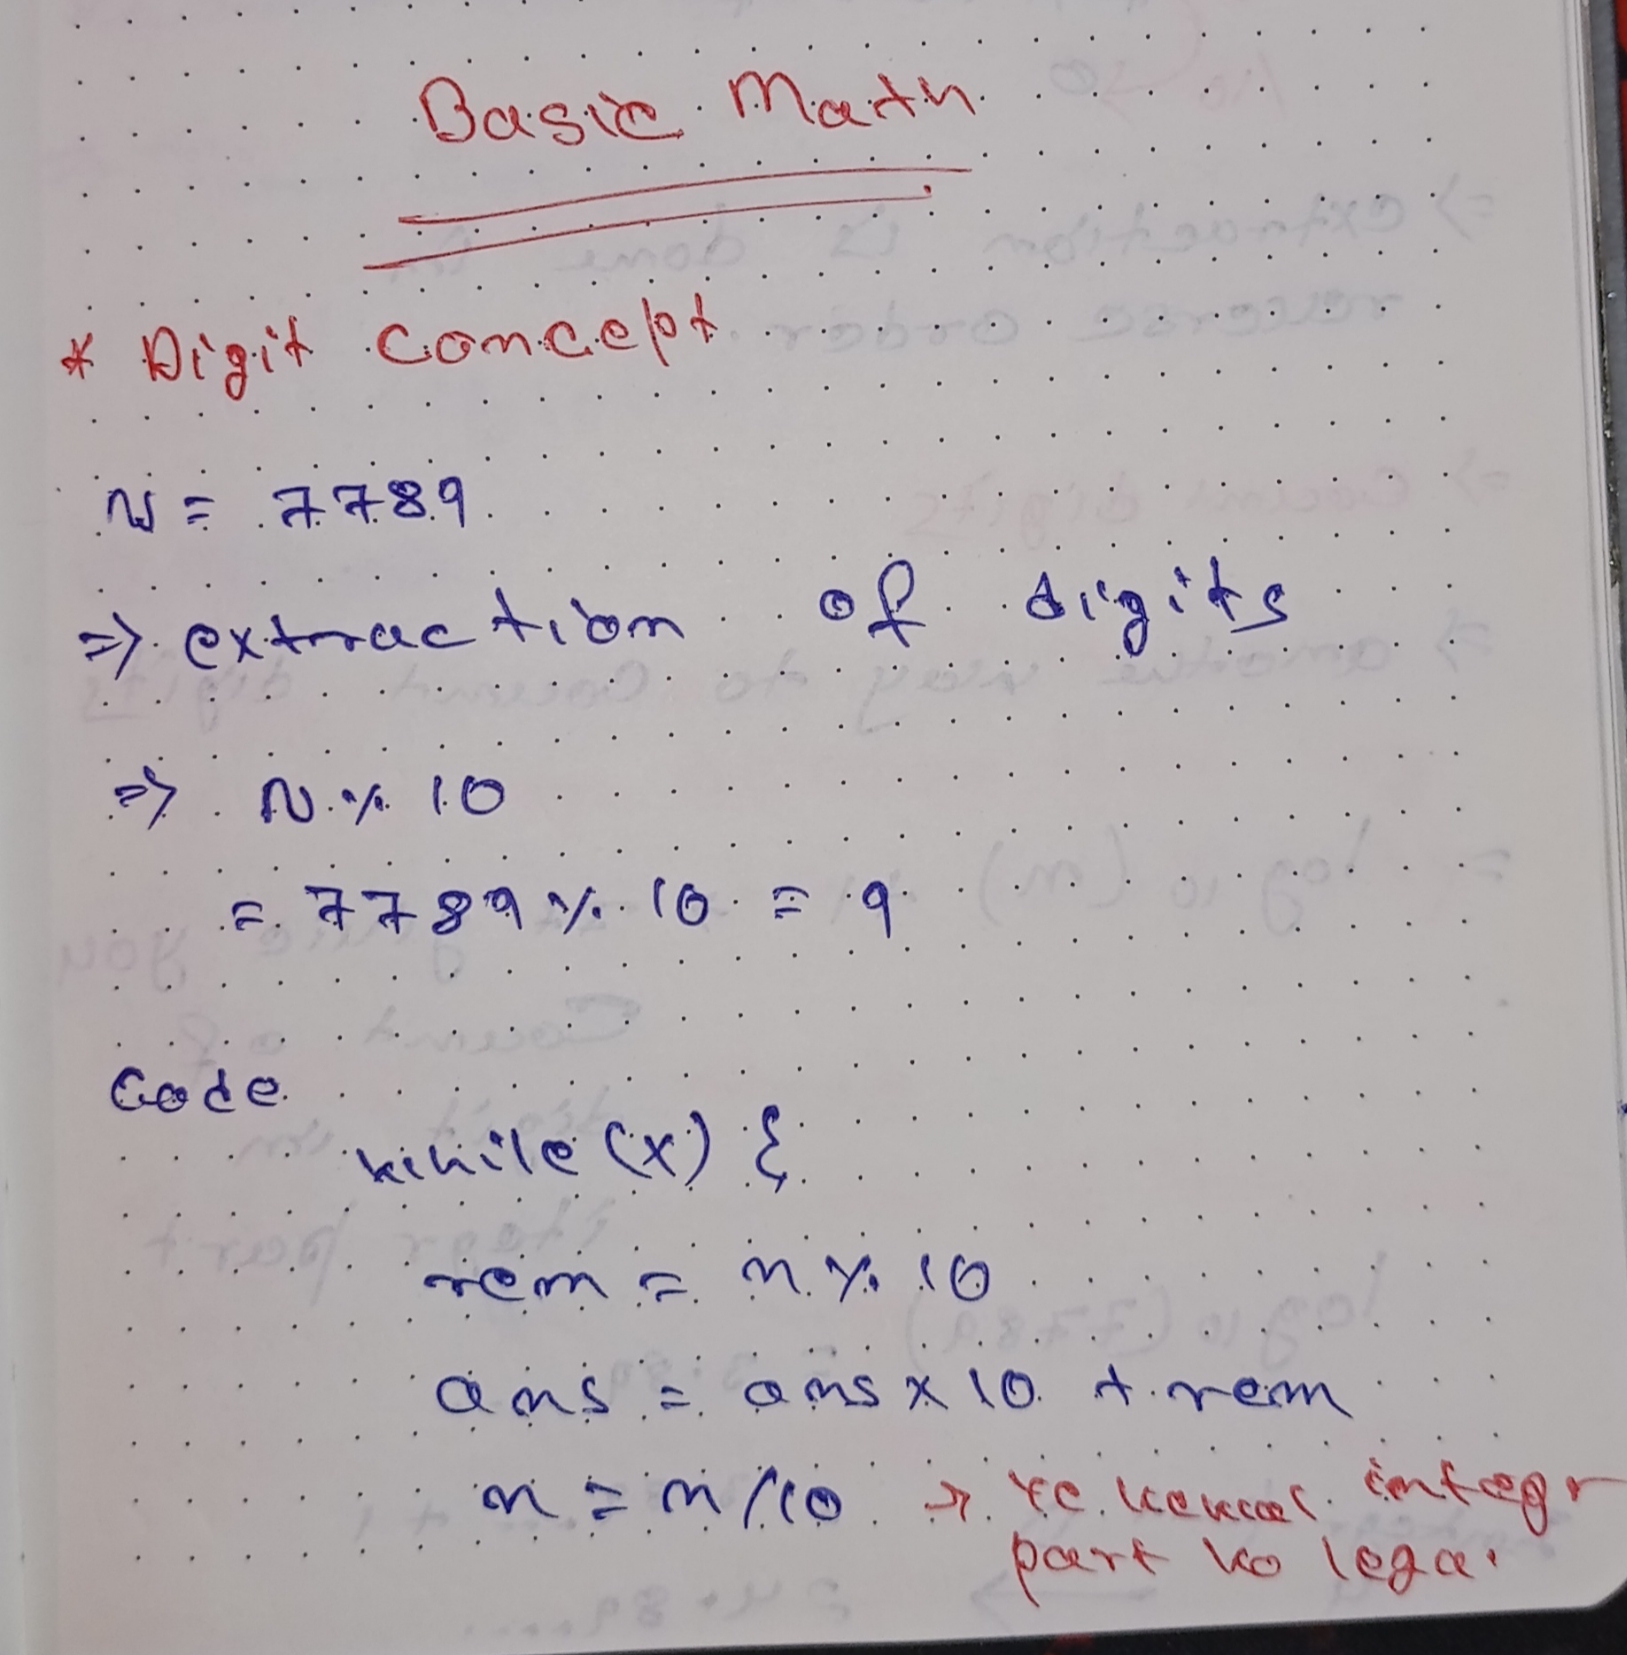 Basic Math
* Digit Concept
N = 7789
=> extraction of digits
=> N % 10
= 7789 % 10 = 9
Code
while (x) {
rem = n % 10
ans = ans x 10 + rem
n = n / 10 -> ye kewal integr
part ko lega.